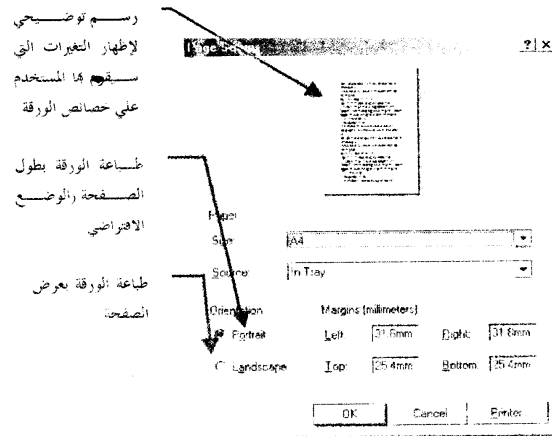 رسم توضيحي
لإظهار التغيرات التي
سيقوم بها المستخدم
علي خصائص الورقة
طباعة الورقة بطول
الصفحة (الوضع
الافتراضي
طباعة الورقة بعرض
الصفحة
? x
Paper
Size: A4
Source: In Tray
Orientation
Portrait
Landscape
Margins (millimeters)
Left: 31.8mm Right: 31.8mm
Top: 25.4mm Bottom: 25.4mm
OK Cancel Printer